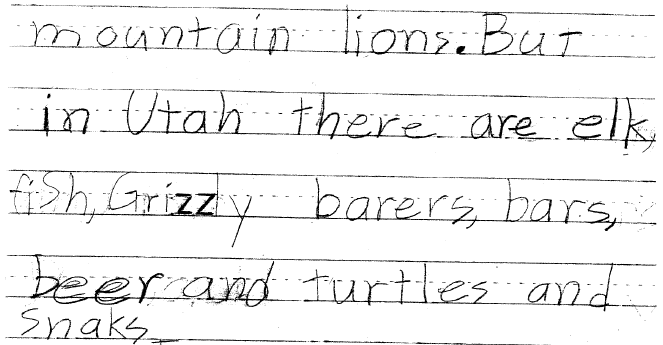 mountain lions. But
in Utah there are elk,
fish, Grizzly barers, bars,
beer and turtles and
snaks